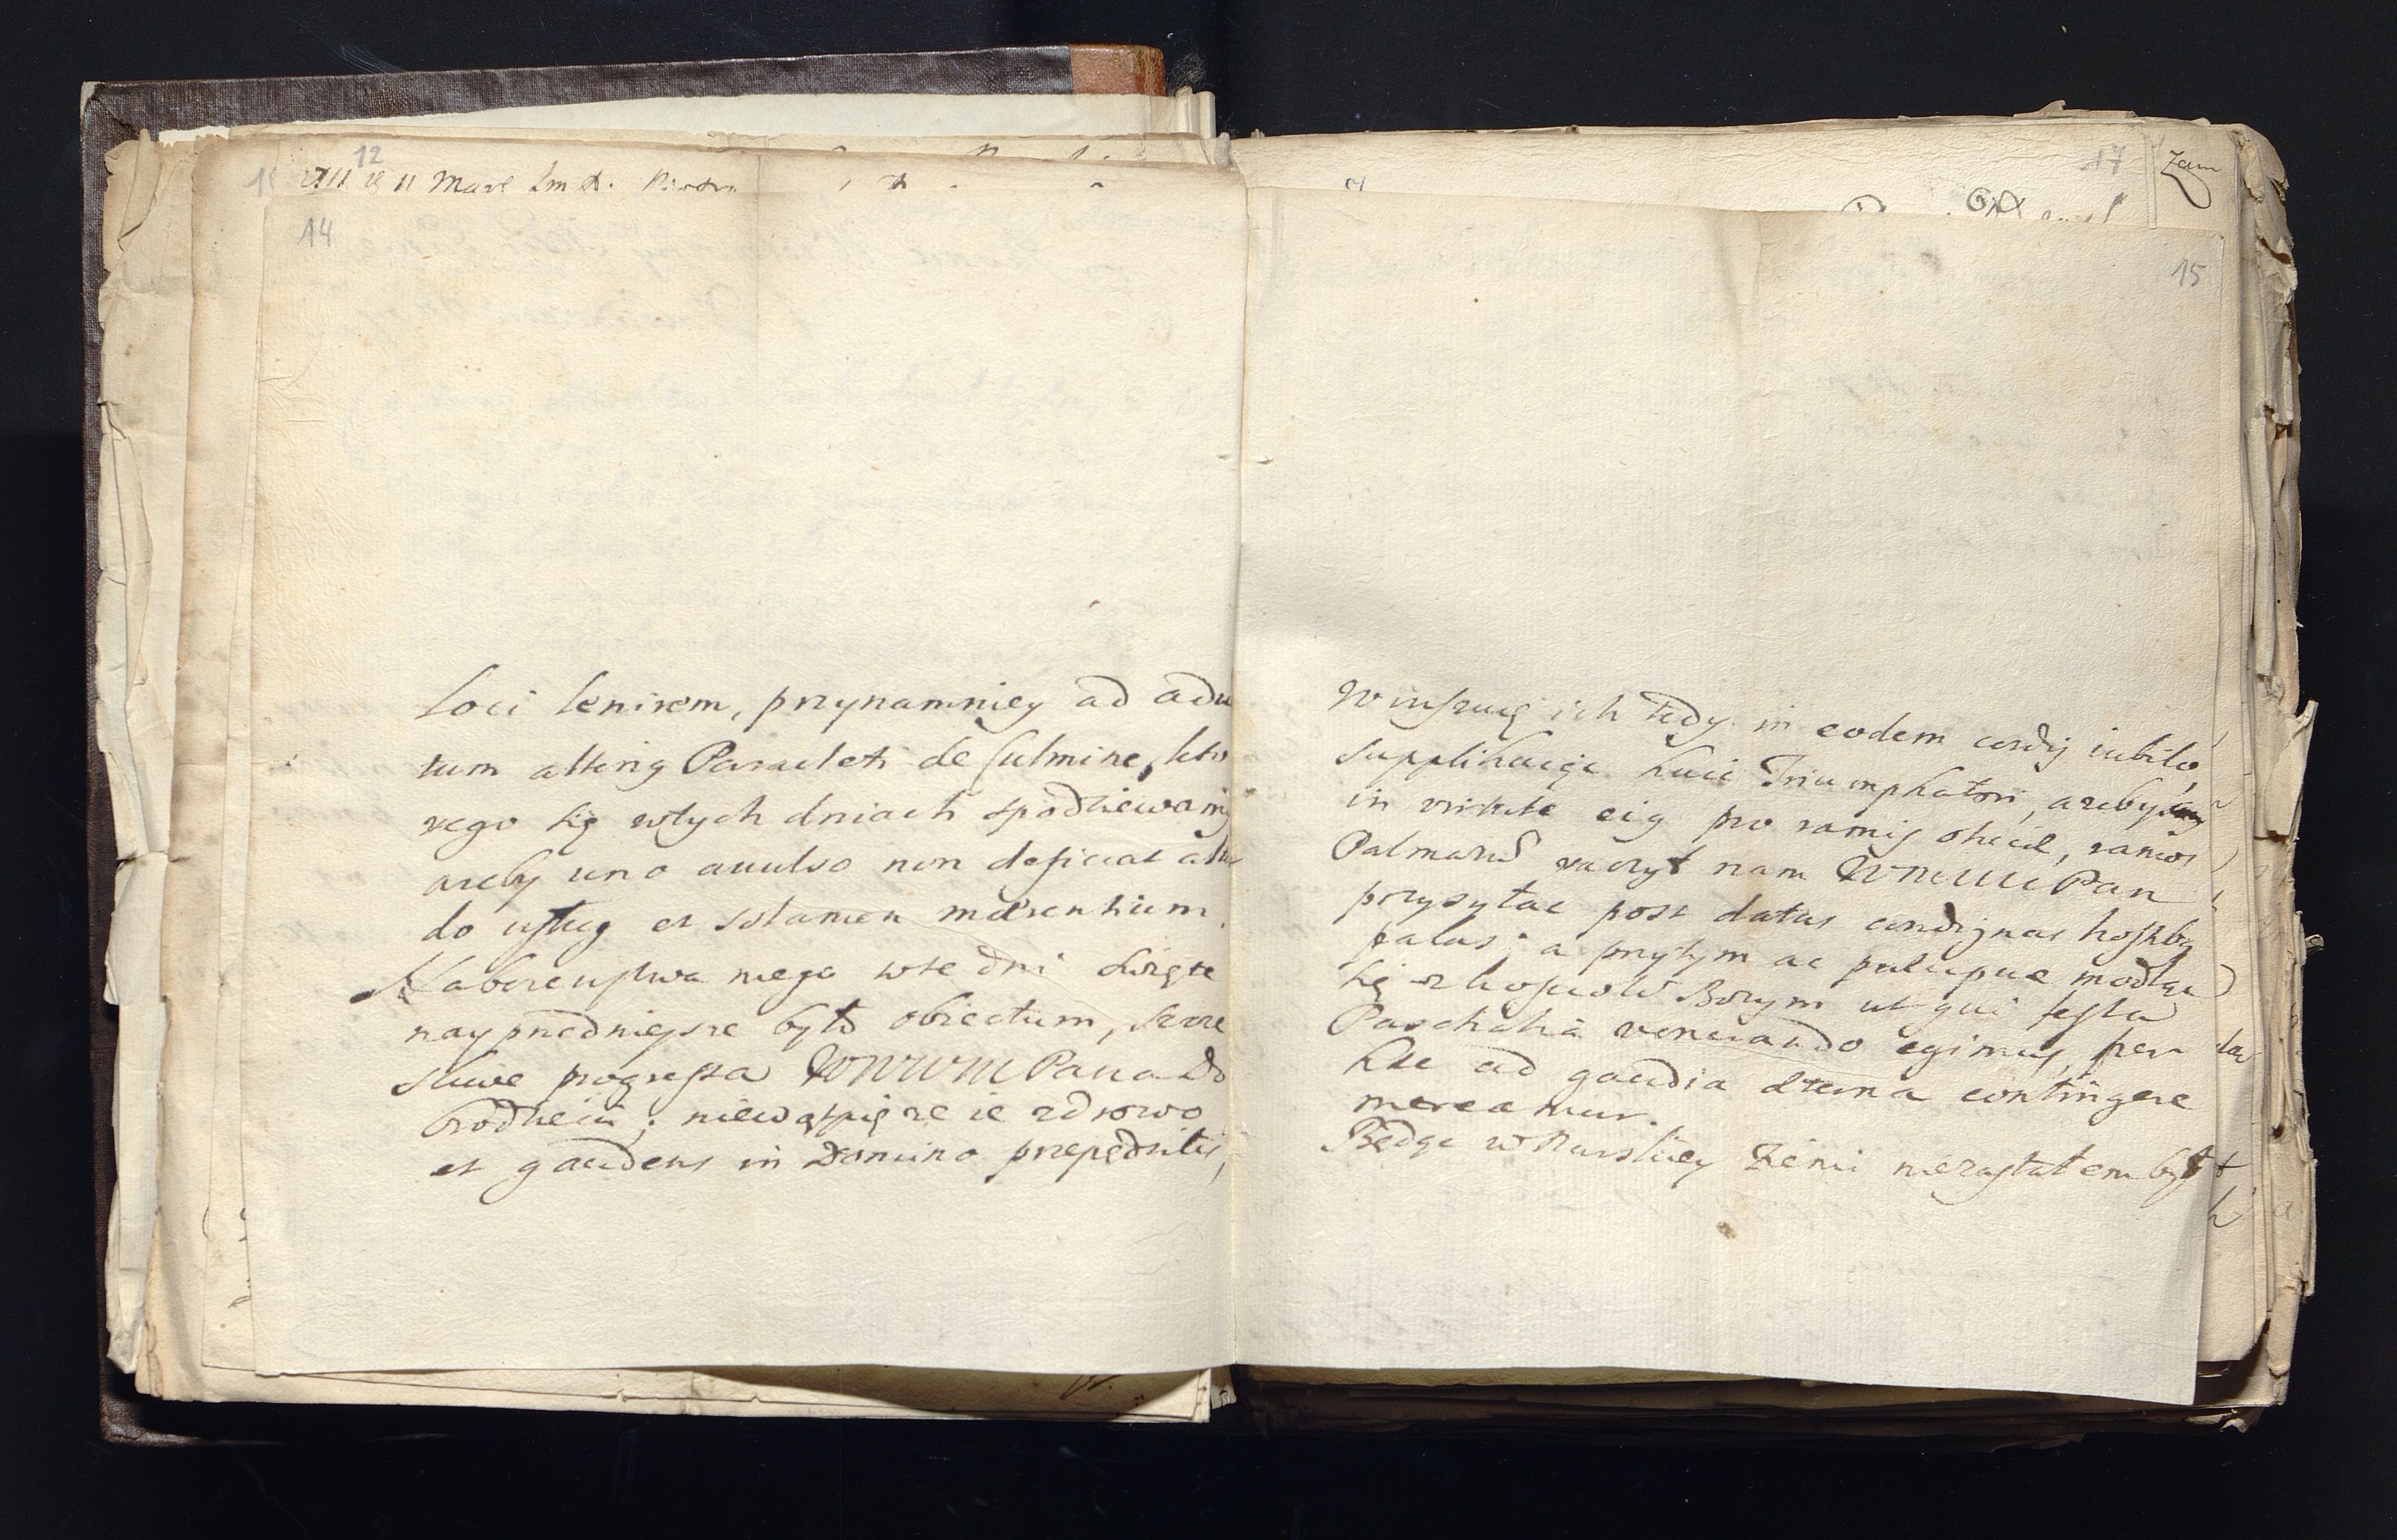 12
14
loci lenirem, przynamniey ad adu
tum alterig Paracleti de Culmine, kto
rego się wtych dniach spodziewamy
azeby uno auulso non deficiat alter
do usług et solamen mærentium.
Nabozenstwa mego wte dni Swięte
nayprzednieysze było obiectum, szcze
sliwe progressa WMWM Pana Do
brodzieia; niewątpię ze ie zdrowo
et gaudens in Domino przepędziłes,
17
Zam
15
Winszuię ich tedy in eodem cordis iubilo,
supplikuiąc huic Triumphatori, azeby
in virtute eig pro ramis oliva, ramos
Palmarum raczył nam WMWM Pan
przysyłac post datas condignas hostibg
palas; a przytym ac præcipue modląc
się z kosciołem Bozym ut qui festa
Paschalia venerando egimus, per
hæc ad gaudia æterna contingere
mereamur.
Będąc w Ruskiey Ziemi niezastałem był